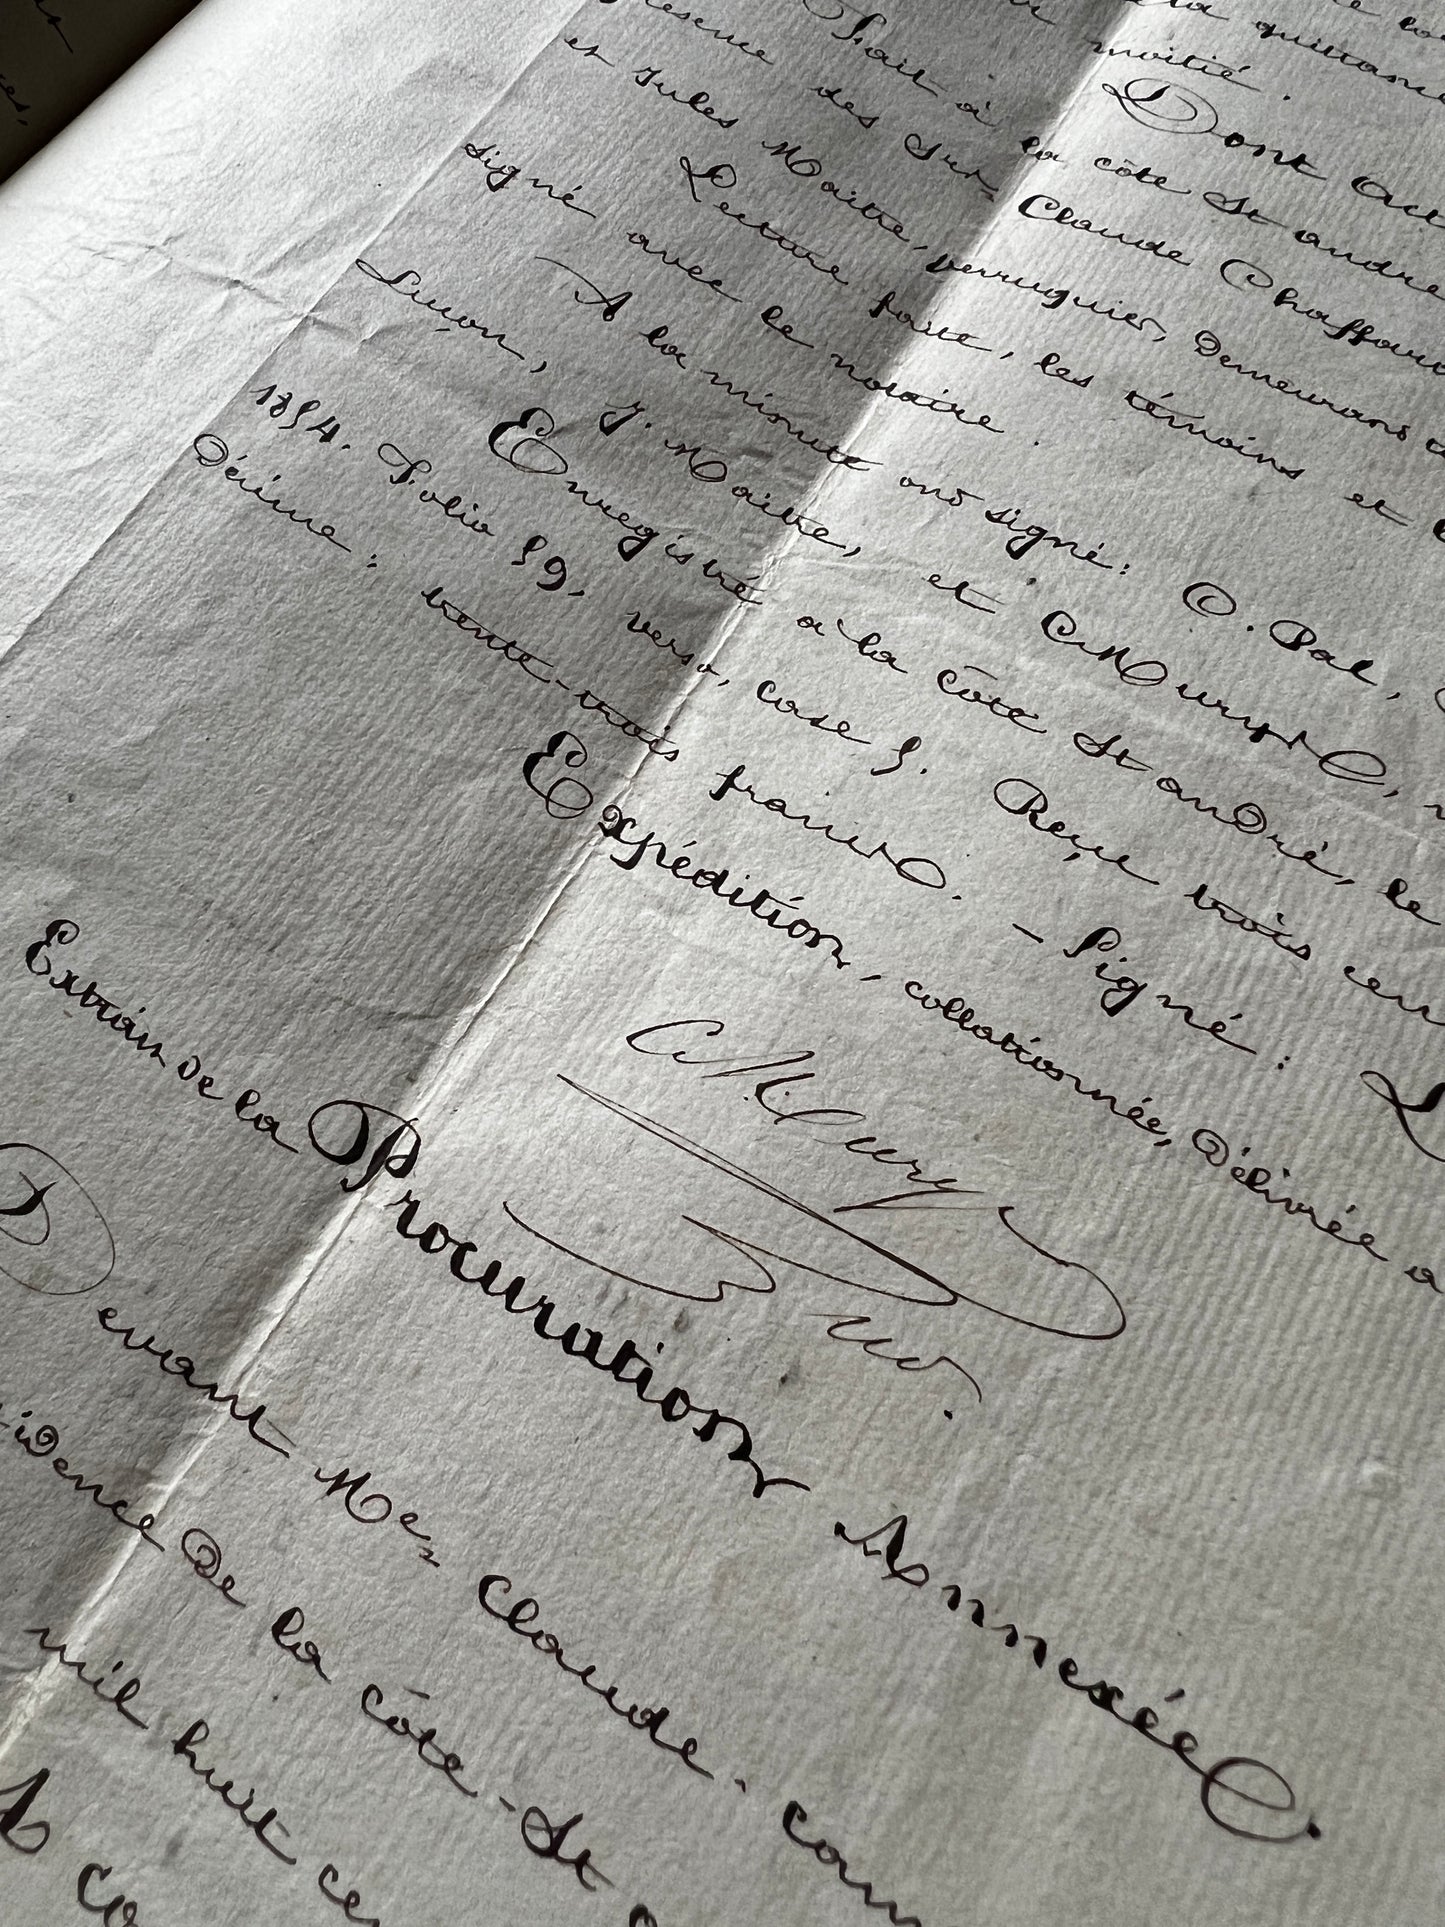 la quittance
moitié.
Dont Act
Fait à la côte St andré
résence des Srs Claude Chaffard
et Jules Maitre, perruquier, Demeurant à
Lecture faite, les témoins et
signé avec le notaire.
A la minute ont signé: C. Pal,
Luçon, J. Maitre, et
Enregistré à la côte St andré, le
1854. Folio 59, verso, case 5. Reçu trois cen
Décime: trente-trois francs. - Signé: L
Expédition, collationnée, Délivrée a
Extrait de la Procuration Annexée.
Devant Me Claude-
idence De la côte-St a
mil huit ce
A co